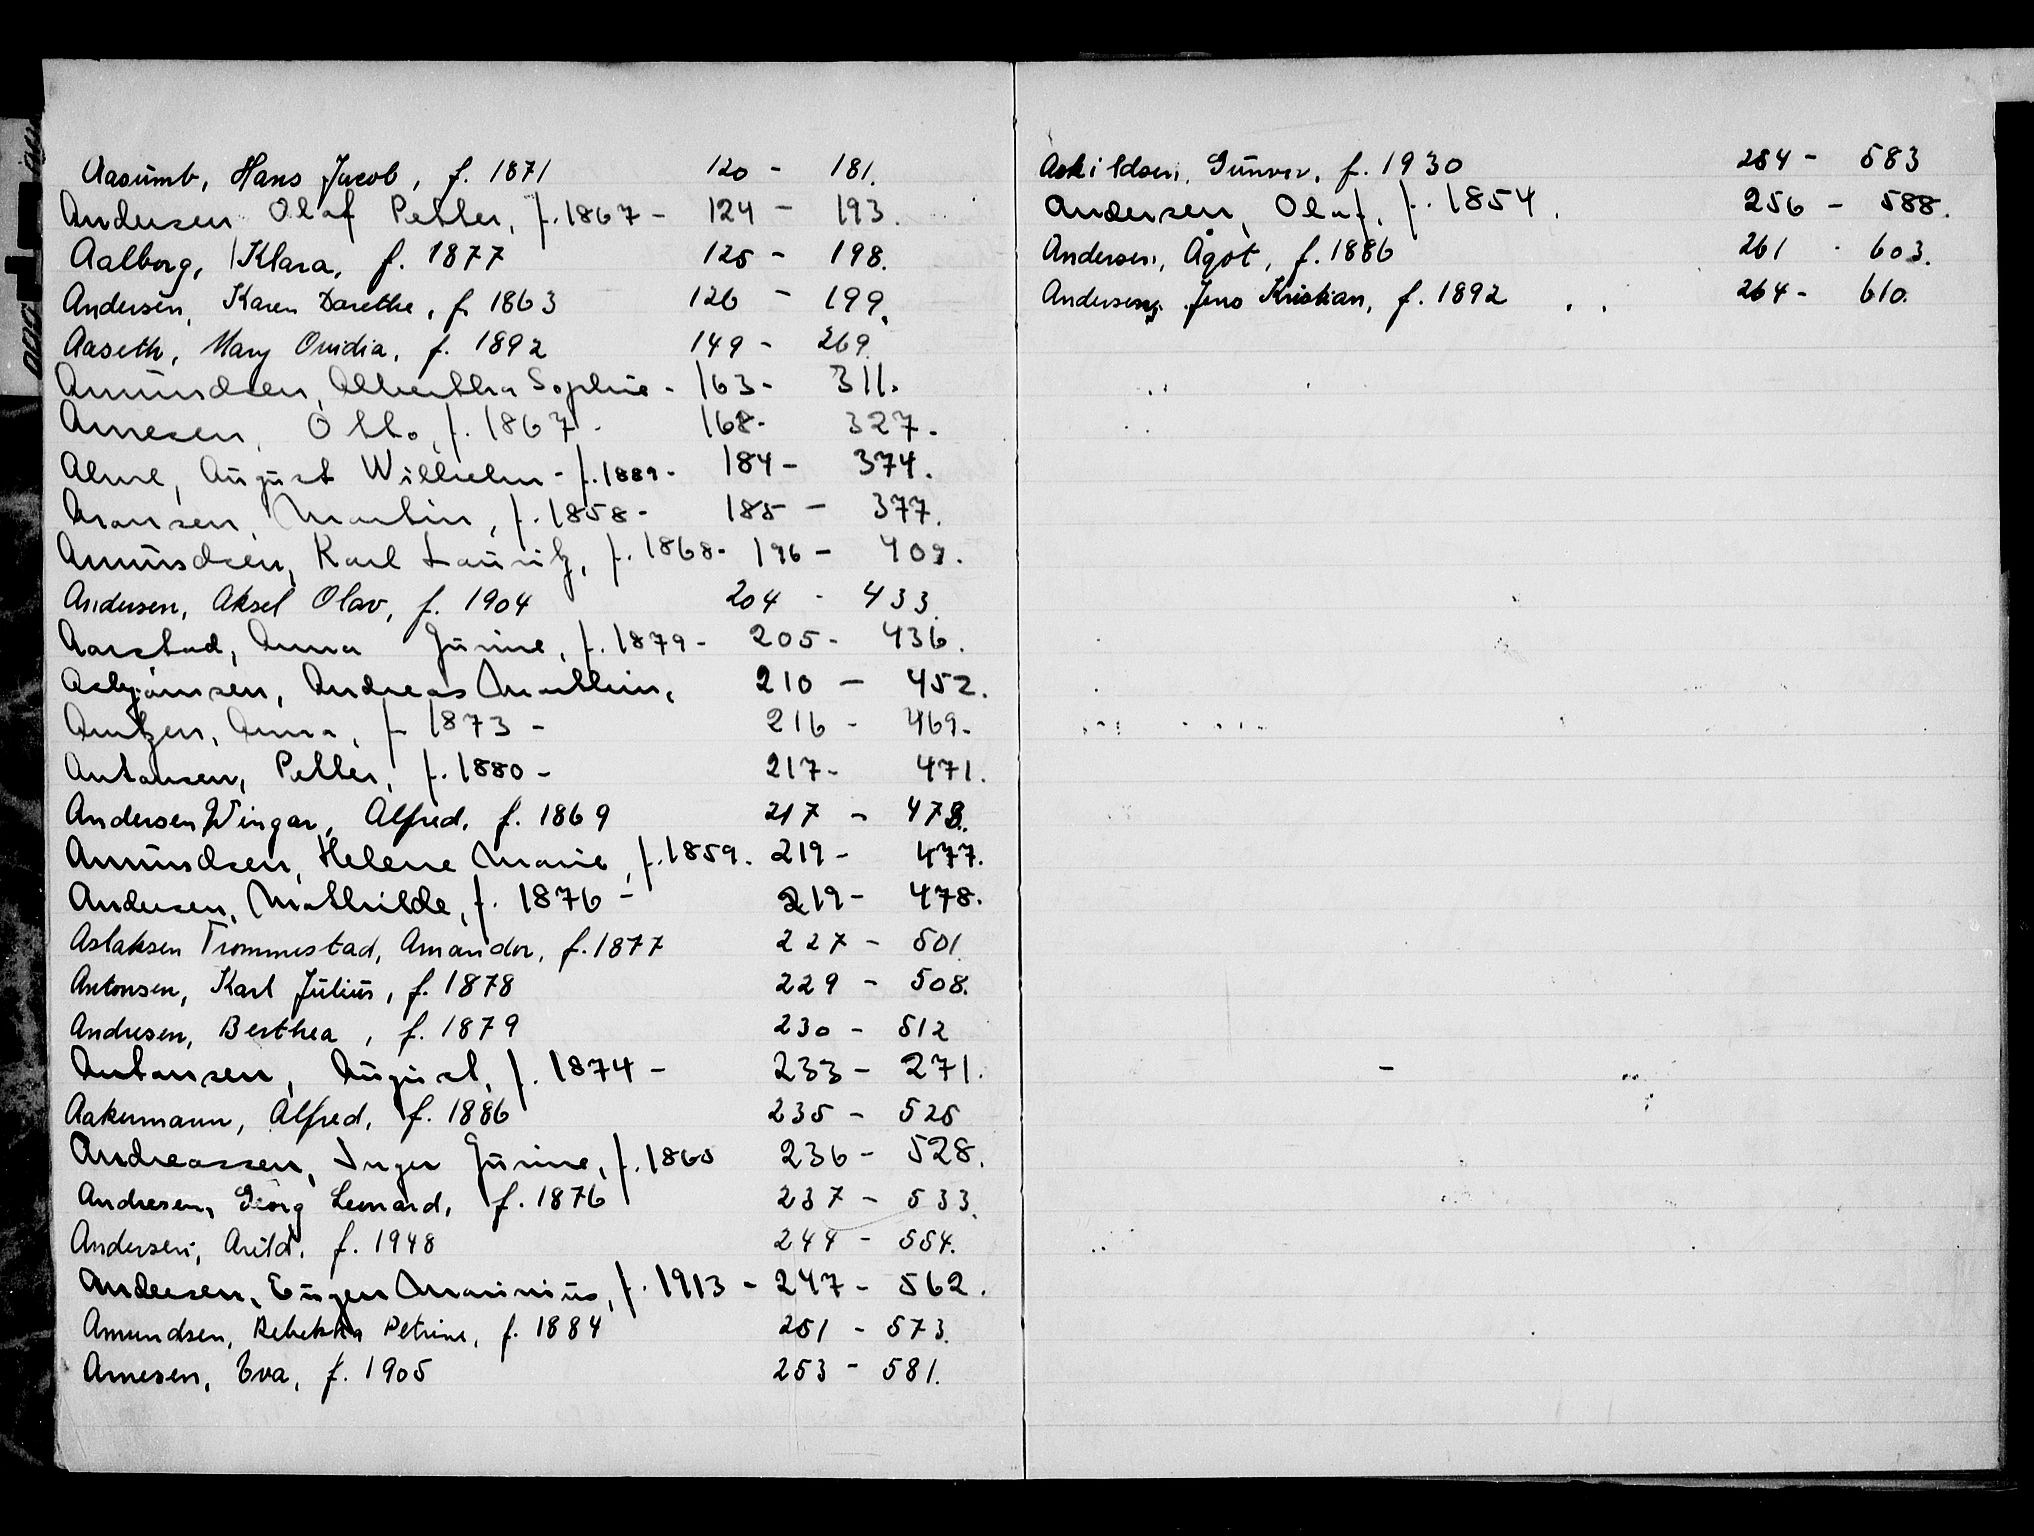 Aasumb, Hans Jacob, f. 1871 120 - 181.
Andersen Olaf Petter, f. 1867 - 124 - 193.
Aalborg, Klara, f. 1877 125 - 198.
Andersen, Karen Dorethe, f. 1863 126 - 199.
Aaseth, Mary Ovidia, f. 1892 149 - 269.
Amundsen, Albertha Sophie - 163 - 311.
Arnesen, Otto, f. 1867 - 168 - 327.
August Wilhelm - f. 1889 - 184 - 374.
Aronsen, Martin, f. 1858 - 185 - 377.
Amundsen, Karl Lauritz, f. 1868 - 196 - 409.
Andersen, Aksel Olav, f. 1904 204 - 433.
Aarstad, Anna Gurine, f. 1879 - 205 - 436.
Asbjörnsen, Andreas Marthin, 210 - 452.
Arntzen, Anna, f. 1873 - 216 - 469 -
Antonsen, Petter, f. 1880 - 217 - 471.
Andersen Wingar, Alfred, f. 1869 217 - 473.
Amundsen, Helene Marie, f. 1859. 219 - 477.
Andersen, Mathilde, f. 1876 - 219 - 478.
Aslaksen Trommestad, Amandor, f. 1877 227 - 501.
Antonsen, Karl Julius, f. 1878 229 - 508.
Andresen, Berthea, f. 1879 230 - 512
Antonsen, August, f. 1874 - 233 - 271.
Aakermann, Alfred, f. 1886 235 - 525
Andreassen, Inger Gurine, f. 1865 236 - 528.
Andresen, Georg Leonard, f. 1876 237 - 533.
Andersen, Arild, f. 1948 244 - 554.
Andersen, Eugen Marinius, f. 1913 - 247 - 562.
Amundsen, Rebekka Petrine, f. 1884 251 - 573.
Arnesen, Eva, f. 1905 253 - 581.
Askildsen, Gunvor, f. 1930 254 - 583
Andersen, Olaf, f. 1854. 256 - 588.
Andersen, Ågot, f. 1886 261 - 603.
Andersen, Jens Kristian, f. 1892 264 - 610.